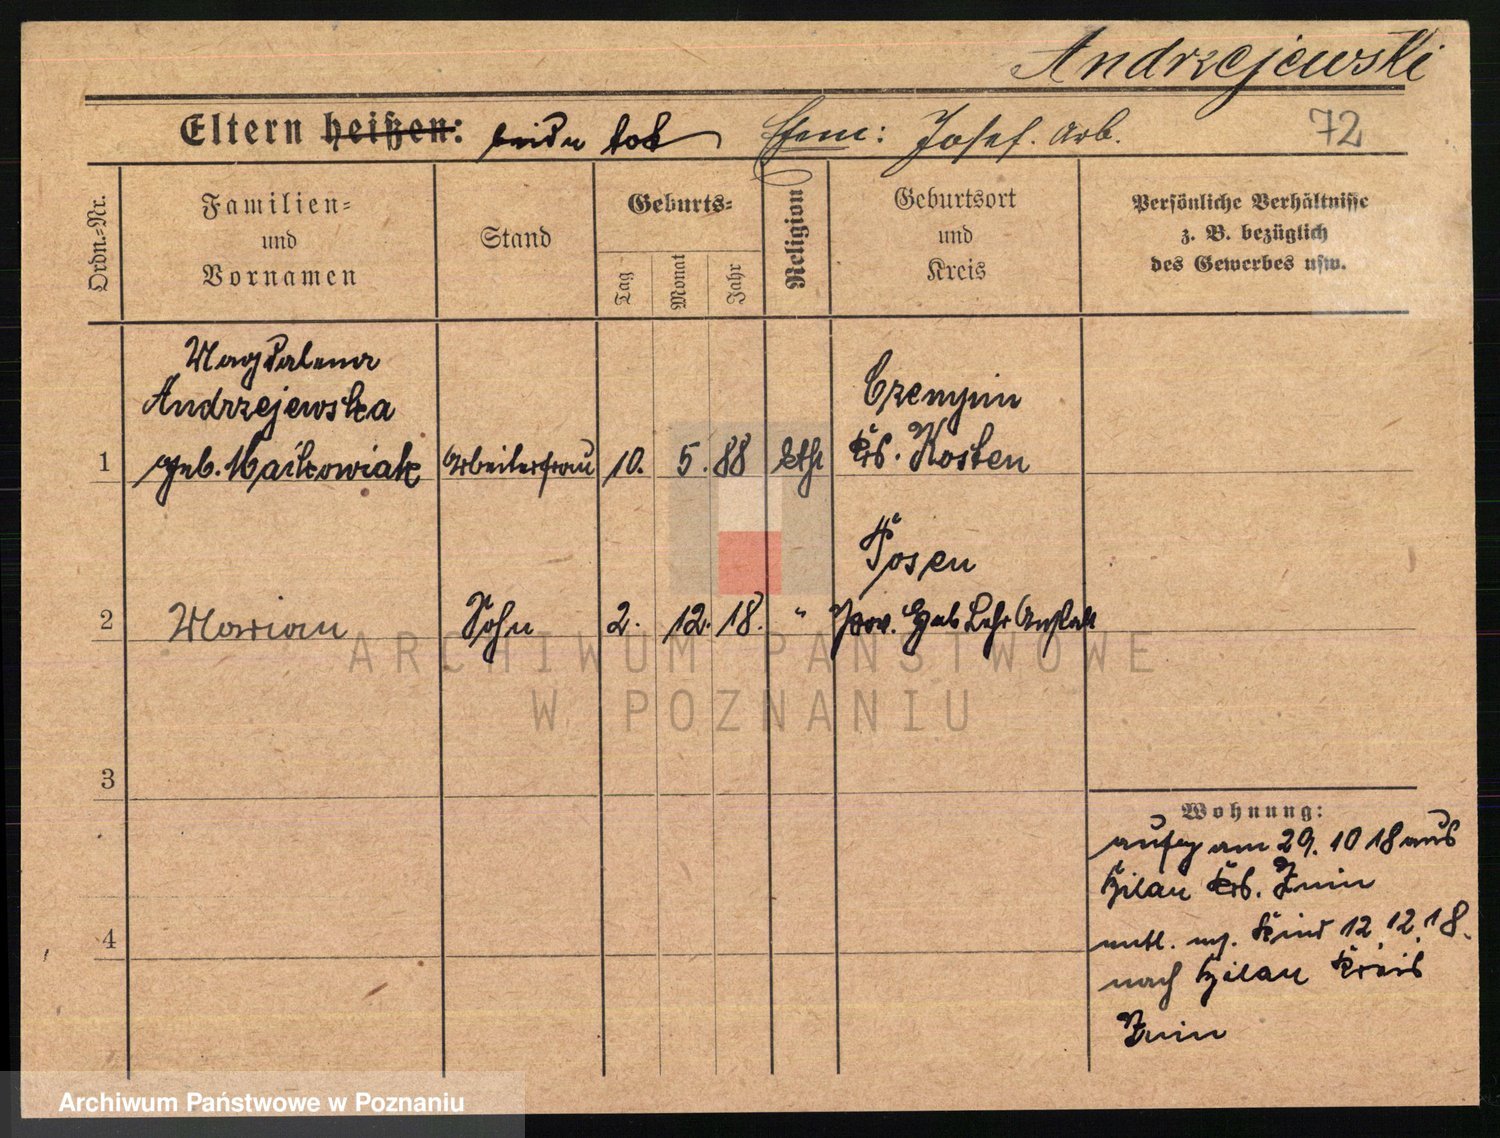 Andrzejewski
Eltern heißen: beide tot Ehem: Josef. Arb. 72
Ordn.-Nr.
Familien-
und
Vornamen
Stand
Geburts-
Tag
Monat
Jahr
Religion
Geburtsort
und
Kreis
Persönliche Verhältnisse
z. B. bezüglich
des Gewerbes usw.
Magdalena
Andrzejewska
1 geb. Maikowiak Arbeiterfrau 10. 5. 88 kth
Czempin
Krs. Kosten
Posen
2 Marian Sohn 2. 12. 18. " Prov. Heb Lehr Anstalt
3
4
Wohnung:
aufg am 29. 10 18 aus
Krs. Znin
entl. m. Kind 12. 12. 18.
nach Kreis
Znin
ARCHIWUM PAŃSTWOWE
W POZNANIU
Archiwum Państwowe w Poznaniu